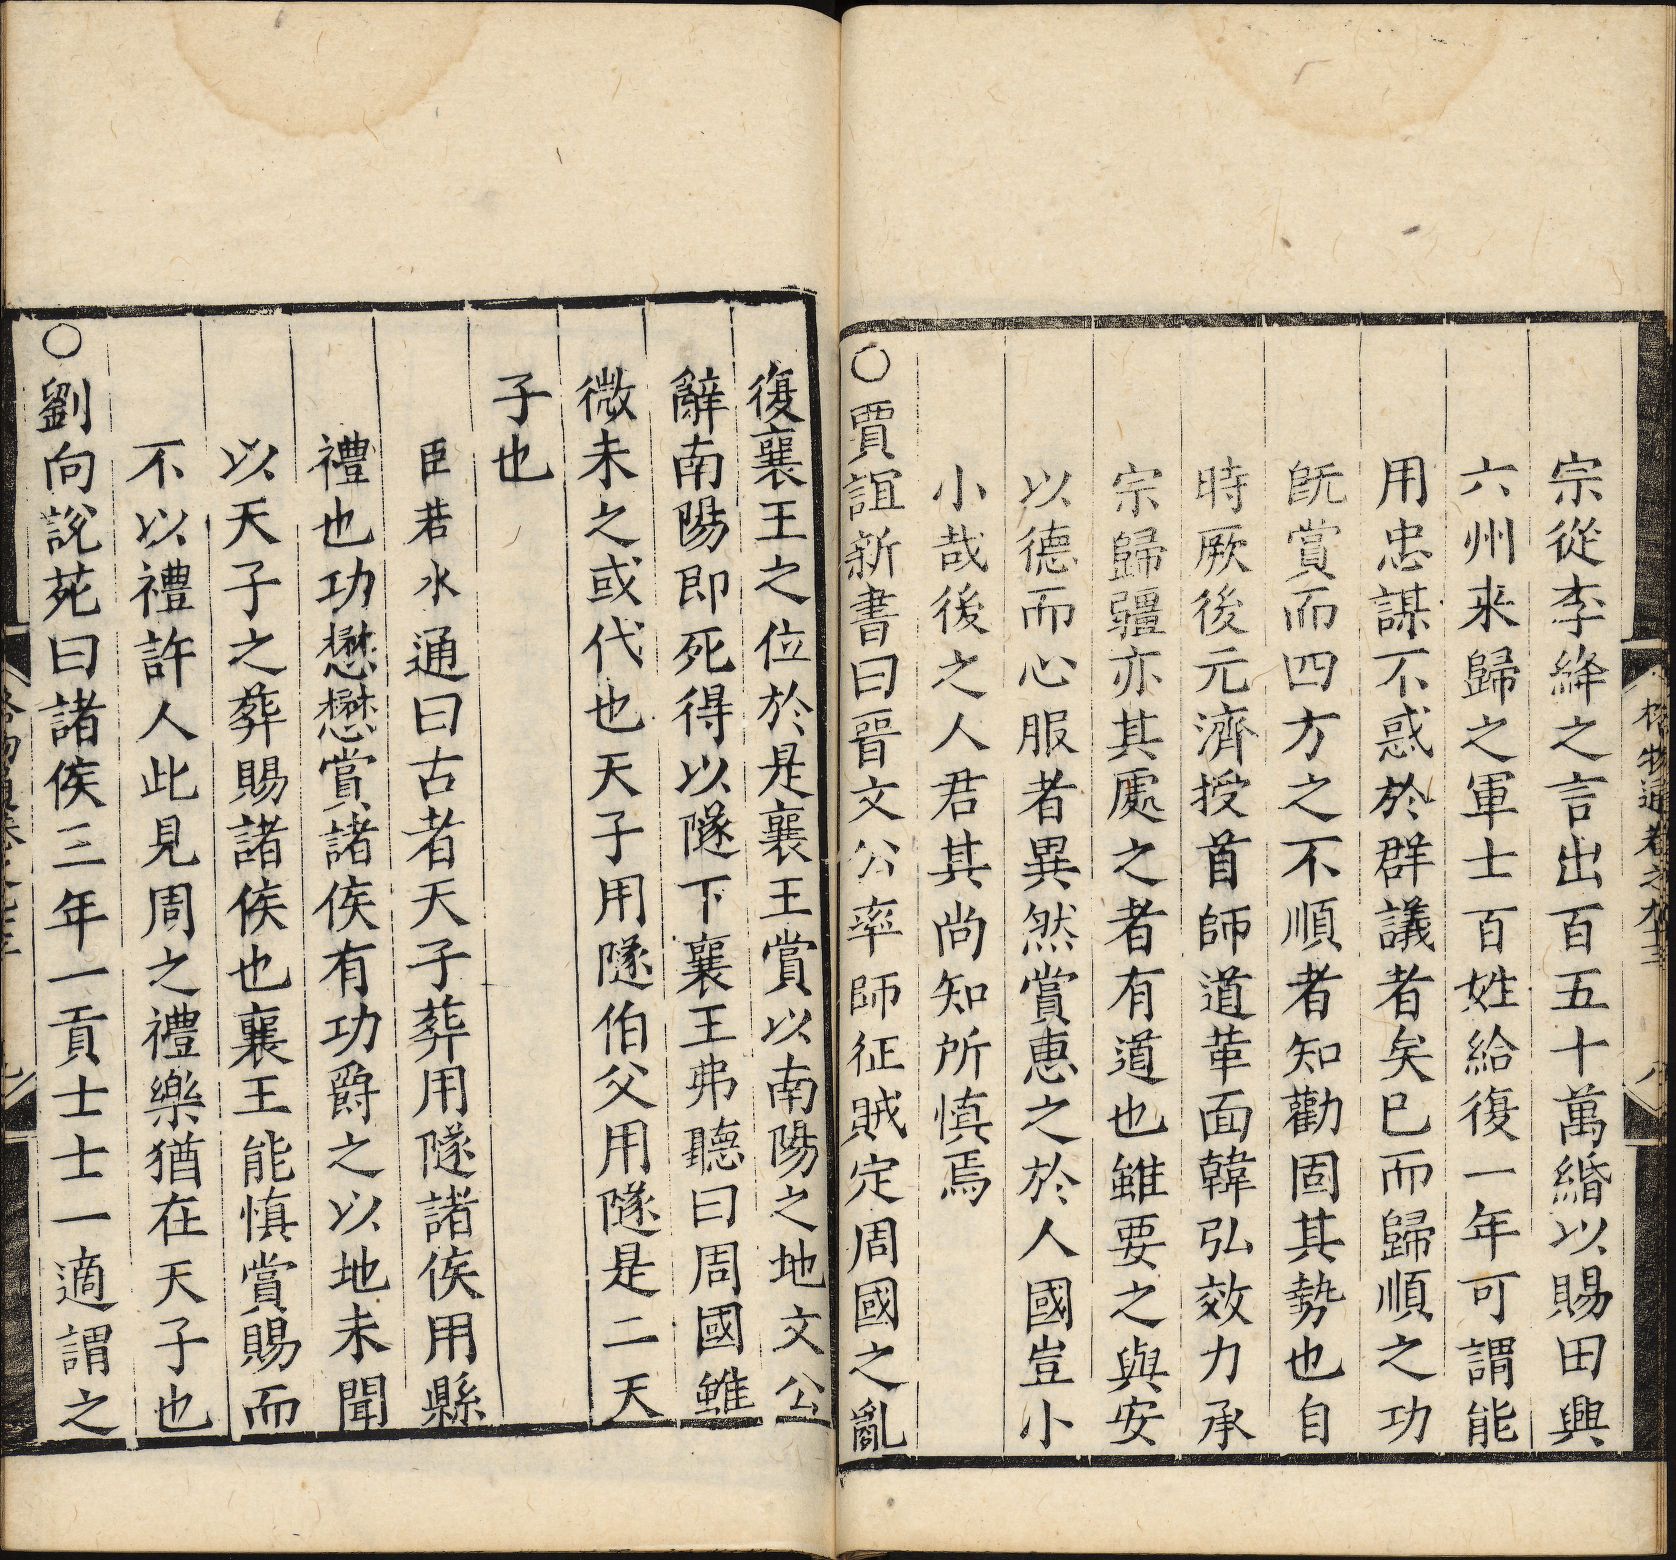 宗從李絳之言出百五十萬緡以賜田興
六州来歸之軍士百姓給復一年可謂能
用忠謀不惑於群議者矣巳而歸順之功
旣賞而四方之不順者知勸固其勢也自
時厥後元濟授首師道革面韓弘效力承
宗歸疆亦其處之者有道也雖要之與安
以德而心服者異然賞惠之於人國豈小
小哉後之人君其尚知所慎焉
○賈誼新書曰晉文公率師征賊定周國之亂
復襄王之位於是襄王賞以南陽之地文公
辭南陽即死得以隧下襄王弗聽曰周國雖
微未之或代也天子用隧伯父用隧是二天
子也
臣若水通曰古者天子葬用隧諸侯用縣
禮也功懋懋賞諸侯有功爵之以地未聞
以天子之葬賜諸侯也襄王能慎賞賜而
不以禮許人此見周之禮樂猶在天子也
○劉向說苑曰諸侯三年一貢士士一適謂之